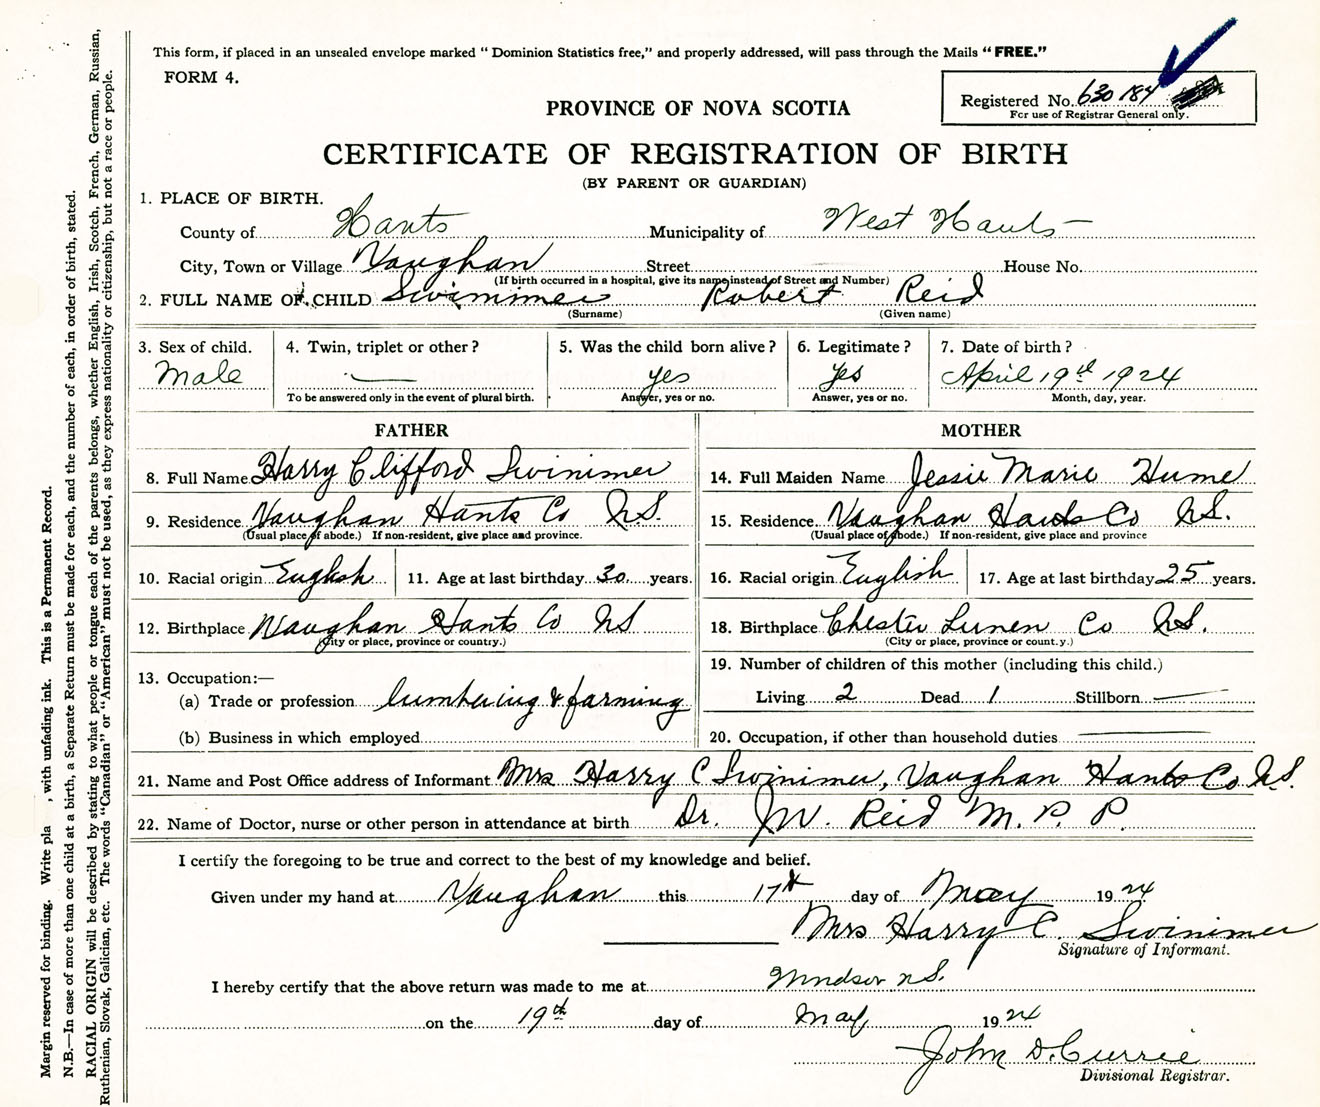 This form, if placed in an unsealed envelope marked "Dominion Statistics free," and properly addressed, will pass through the Mails "FREE."
FORM 4.
Registered No. 630184
For use of Registrar General only.
PROVINCE OF NOVA SCOTIA
CERTIFICATE OF REGISTRATION OF BIRTH
(BY PARENT OR GUARDIAN)
1. PLACE OF BIRTH.
County of Hants Municipality of West Hants
City, Town or Village Vaughan Street House No.
(If birth occurred in a hospital, give its name instead of Street and Number)
2. FULL NAME OF CHILD Swinimer Robert Reid
(Surname) (Given name)
3. Sex of child. 4. Twin, triplet or other? 5. Was the child born alive? 6. Legitimate? 7. Date of birth?
Male — yes yes April 19th 1924
To be answered only in the event of plural birth. Answer, yes or no. Answer, yes or no. Month, day, year.
FATHER MOTHER
8. Full Name Harry Clifford Swinimer 14. Full Maiden Name Jessie Marie Hume
9. Residence Vaughan Hants Co N.S. 15. Residence Vaughan Hants Co N.S.
(Usual place of abode.) If non-resident, give place and province. (Usual place of abode.) If non-resident, give place and province
10. Racial origin English 11. Age at last birthday 30 years. 16. Racial origin English 17. Age at last birthday 25 years.
12. Birthplace Vaughan Hants Co NS 18. Birthplace Chester Lunen Co N.S.
(City or place, province or country.) (City or place, province or count.y.)
13. Occupation:— 19. Number of children of this mother (including this child.)
(a) Trade or profession lumbering & farming Living 2 Dead 1 Stillborn —
(b) Business in which employed 20. Occupation, if other than household duties —
21. Name and Post Office address of Informant Mrs Harry C Swinimer, Vaughan Hants Co N.S.
22. Name of Doctor, nurse or other person in attendance at birth Dr. J.W. Reid M.P.P.
I certify the foregoing to be true and correct to the best of my knowledge and belief.
Given under my hand at Vaughan this 17th day of May 1924
Mrs Harry C. Swinimer
Signature of Informant.
I hereby certify that the above return was made to me at Windsor N.S.
on the 19th day of May 1924
John D. Currie
Divisional Registrar.
Margin reserved for binding. Write pla , with unfading ink. This is a Permanent Record.
N.B.—In case of more than one child at a birth, a Separate Return must be made for each, and the number of each, in order of birth, stated.
RACIAL ORIGIN will be described by stating to what people or tongue each of the parents belongs, whether English, Irish, Scotch, French, German, Russian,
Ruthenian, Slovak, Galician, etc. The words "Canadian" or "American" must not be used, as they express nationality or citizenship, but not a race or people.